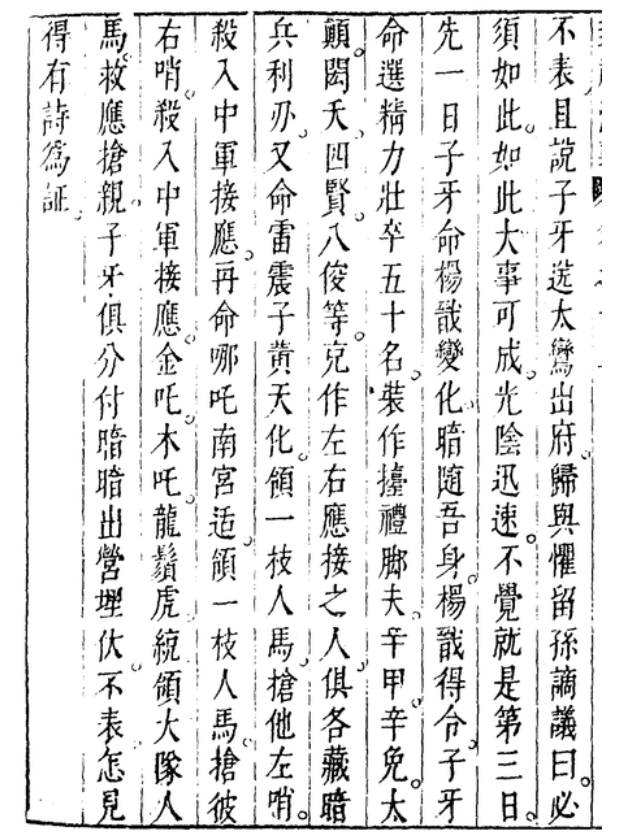 不表且說子牙送太鸞出府。歸與懼留孫謫議曰。必
須如此。如此大事可成。光陰迅速。不覺就是第三日。
先一日子牙命楊戩變化。暗隨吾身。楊戩得令。子牙
命選精力壯卒五十名。裝作擡禮脚夫。辛甲辛免。太
顛閎夭。四賢。八俊等。克作左右應接之人。俱各藏暗
兵利刃。又命雷震子黃天化。領一枝人馬。搶他左哨。
殺入中軍接應。再命哪吒南宮适。領一枝人馬。搶彼
右哨。殺入中軍接應。金吒。木吒。龍鬚虎。統領大隊人
馬。救應搶親。子牙俱分付暗暗出營埋伏。不表。怎見
得有詩為証。